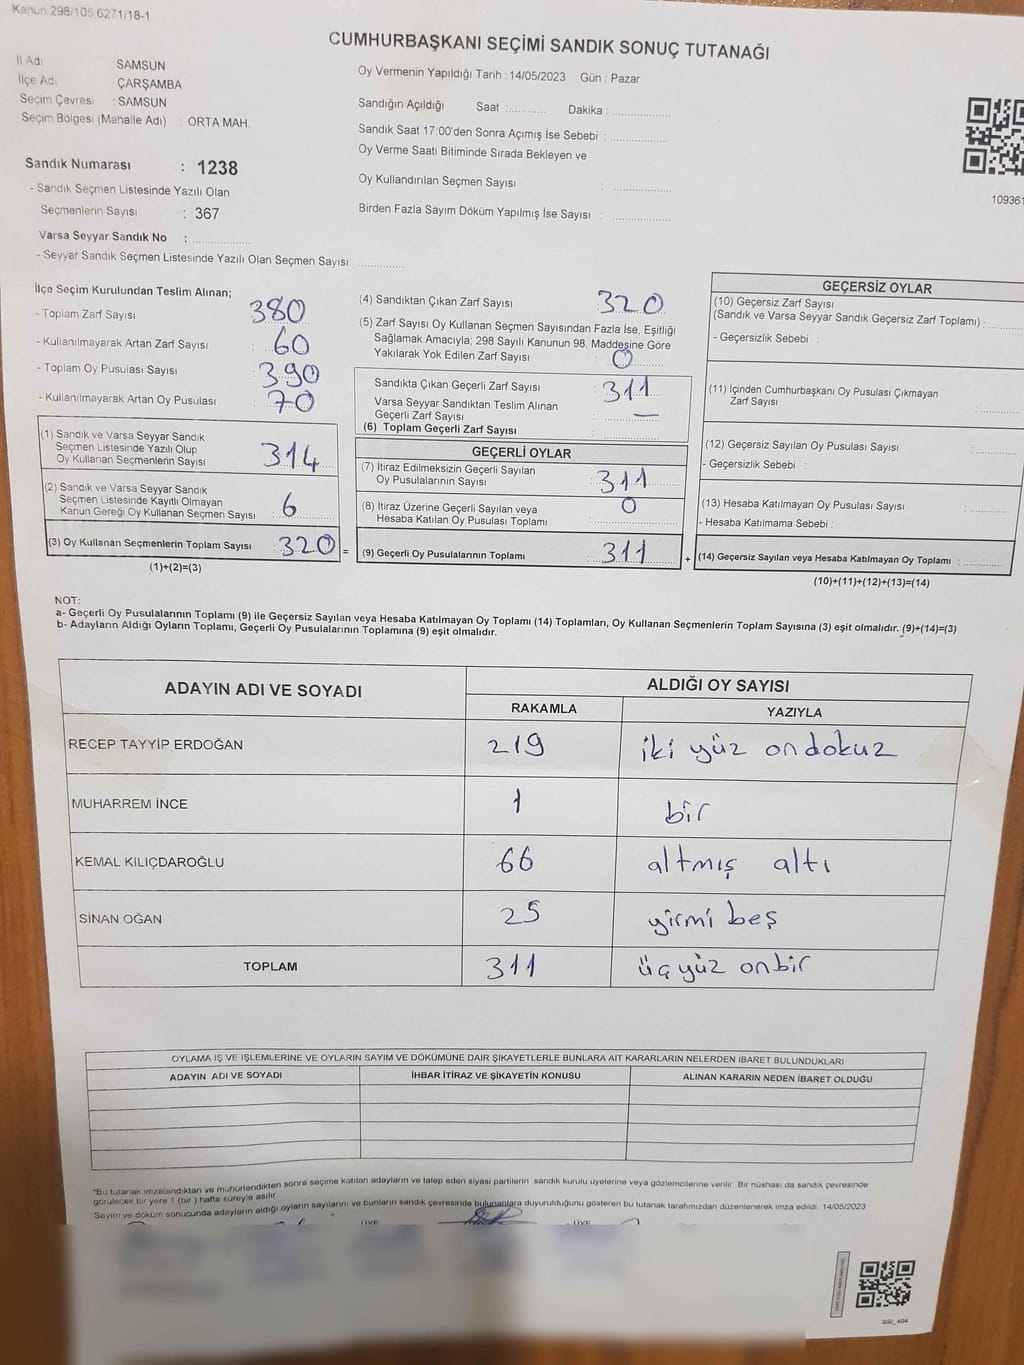 Kanun 298/105 6271/18-1
CUMHURBAŞKANI SEÇİMİ SANDIK SONUÇ TUTANAĞI
İl Adı SAMSUN
İlçe Adı ÇARŞAMBA
Seçim Çevresi : SAMSUN
Seçim Bölgesi (Mahalle Adı) : ORTA MAH.
Sandık Numarası : 1238
- Sandık Seçmen Listesinde Yazılı Olan
Seçmenlerin Sayısı : 367
Varsa Seyyar Sandık No : ....................
- Seyyar Sandık Seçmen Listesinde Yazılı Olan Seçmen Sayısı: ...............
Oy Vermenin Yapıldığı Tarih : 14/05/2023 Gün : Pazar
Sandığın Açıldığı Saat :............ Dakika : ..................
Sandık Saat 17:00'den Sonra Açımış İse Sebebi : ..................
Oy Verme Saati Bitiminde Sırada Bekleyen ve
Oy Kullandırılan Seçmen Sayısı : ..................
Birden Fazla Sayım Döküm Yapılmış İse Sayısı : ..................
109361
İlçe Seçim Kurulundan Teslim Alınan;
- Toplam Zarf Sayısı : 380
- Kullanılmayarak Artan Zarf Sayısı : 60
- Toplam Oy Pusulası Sayısı : 390
- Kullanılmayarak Artan Oy Pusulası : 70
(1) Sandık ve Varsa Seyyar Sandık
Seçmen Listesinde Yazılı Olup
Oy Kullanan Seçmenlerin Sayısı : 314
(2) Sandık ve Varsa Seyyar Sandık
Seçmen Listesinde Kayıtlı Olmayan
Kanun Gereği Oy Kullanan Seçmen Sayısı : 6
(3) Oy Kullanan Seçmenlerin Toplam Sayısı : 320 =
(1)+(2)=(3)
(4) Sandıktan Çıkan Zarf Sayısı : 320
(5) Zarf Sayısı Oy Kullanan Seçmen Sayısından Fazla İse, Eşitliği
Sağlamak Amacıyla; 298 Sayılı Kanunun 98. Maddesine Göre
Yakılarak Yok Edilen Zarf Sayısı : 0
Sandıkta Çıkan Geçerli Zarf Sayısı : 311
Varsa Seyyar Sandıktan Teslim Alınan
Geçerli Zarf Sayısı : —
(6) Toplam Geçerli Zarf Sayısı : ..................
GEÇERLİ OYLAR
(7) İtiraz Edilmeksizin Geçerli Sayılan
Oy Pusulalarının Sayısı : 311
(8) İtiraz Üzerine Geçerli Sayılan veya
Hesaba Katılan Oy Pusulası Toplamı : 0
(9) Geçerli Oy Pusulalarının Toplamı : 311 +
GEÇERSİZ OYLAR
(10) Geçersiz Zarf Sayısı
(Sandık ve Varsa Seyyar Sandık Geçersiz Zarf Toplamı) : ............
- Geçersizlik Sebebi :
(11) İçinden Cumhurbaşkanı Oy Pusulası Çıkmayan
Zarf Sayısı : ............
(12) Geçersiz Sayılan Oy Pusulası Sayısı : ............
- Geçersizlik Sebebi :
(13) Hesaba Katılmayan Oy Pusulası Sayısı : ............
- Hesaba Katılmama Sebebi :
(14) Geçersiz Sayılan veya Hesaba Katılmayan Oy Toplamı : ............
(10)+(11)+(12)+(13)=(14)
NOT:
a- Geçerli Oy Pusulalarının Toplamı (9) ile Geçersiz Sayılan veya Hesaba Katılmayan Oy Toplamı (14) Toplamları, Oy Kullanan Seçmenlerin Toplam Sayısına (3) eşit olmalıdır. (9)+(14)=(3)
b- Adayların Aldığı Oyların Toplamı, Geçerli Oy Pusulalarının Toplamına (9) eşit olmalıdır.
ADAYIN ADI VE SOYADI ALDIĞI OY SAYISI
RAKAMLA YAZIYLA
RECEP TAYYİP ERDOĞAN 219 iki yüz on dokuz
MUHARREM İNCE 1 bir
KEMAL KILIÇDAROĞLU 66 altmış altı
SİNAN OĞAN 25 yirmi beş
TOPLAM 311 üçyüz onbir
OYLAMA İŞ VE İŞLEMLERİNE VE OYLARIN SAYIM VE DÖKÜMÜNE DAİR ŞİKAYETLERLE BUNLARA AİT KARARLARIN NELERDEN İBARET BULUNDUKLARI
ADAYIN ADI VE SOYADI İHBAR İTİRAZ VE ŞİKAYETİN KONUSU ALINAN KARARIN NEDEN İBARET OLDUĞU
*Bu tutanak imzalandıktan ve mühürlendikten sonra seçime katılan adayların ve talep eden siyasi partilerin sandık kurulu üyelerine veya gözlemcilerine verilir. Bir nüshası da sandık çevresinde
görülecek bir yere 1 (bir) hafta süreyle asılır.
Sayım ve döküm sonucunda adayların aldığı oyların sayılarını ve bunların sandık çevresinde bulunanlara duyurulduğunu gösteren bu tutanak tarafımızdan düzenlenerek imza edildi. 14/05/2023
ÜYE ÜYE
SSİ_404